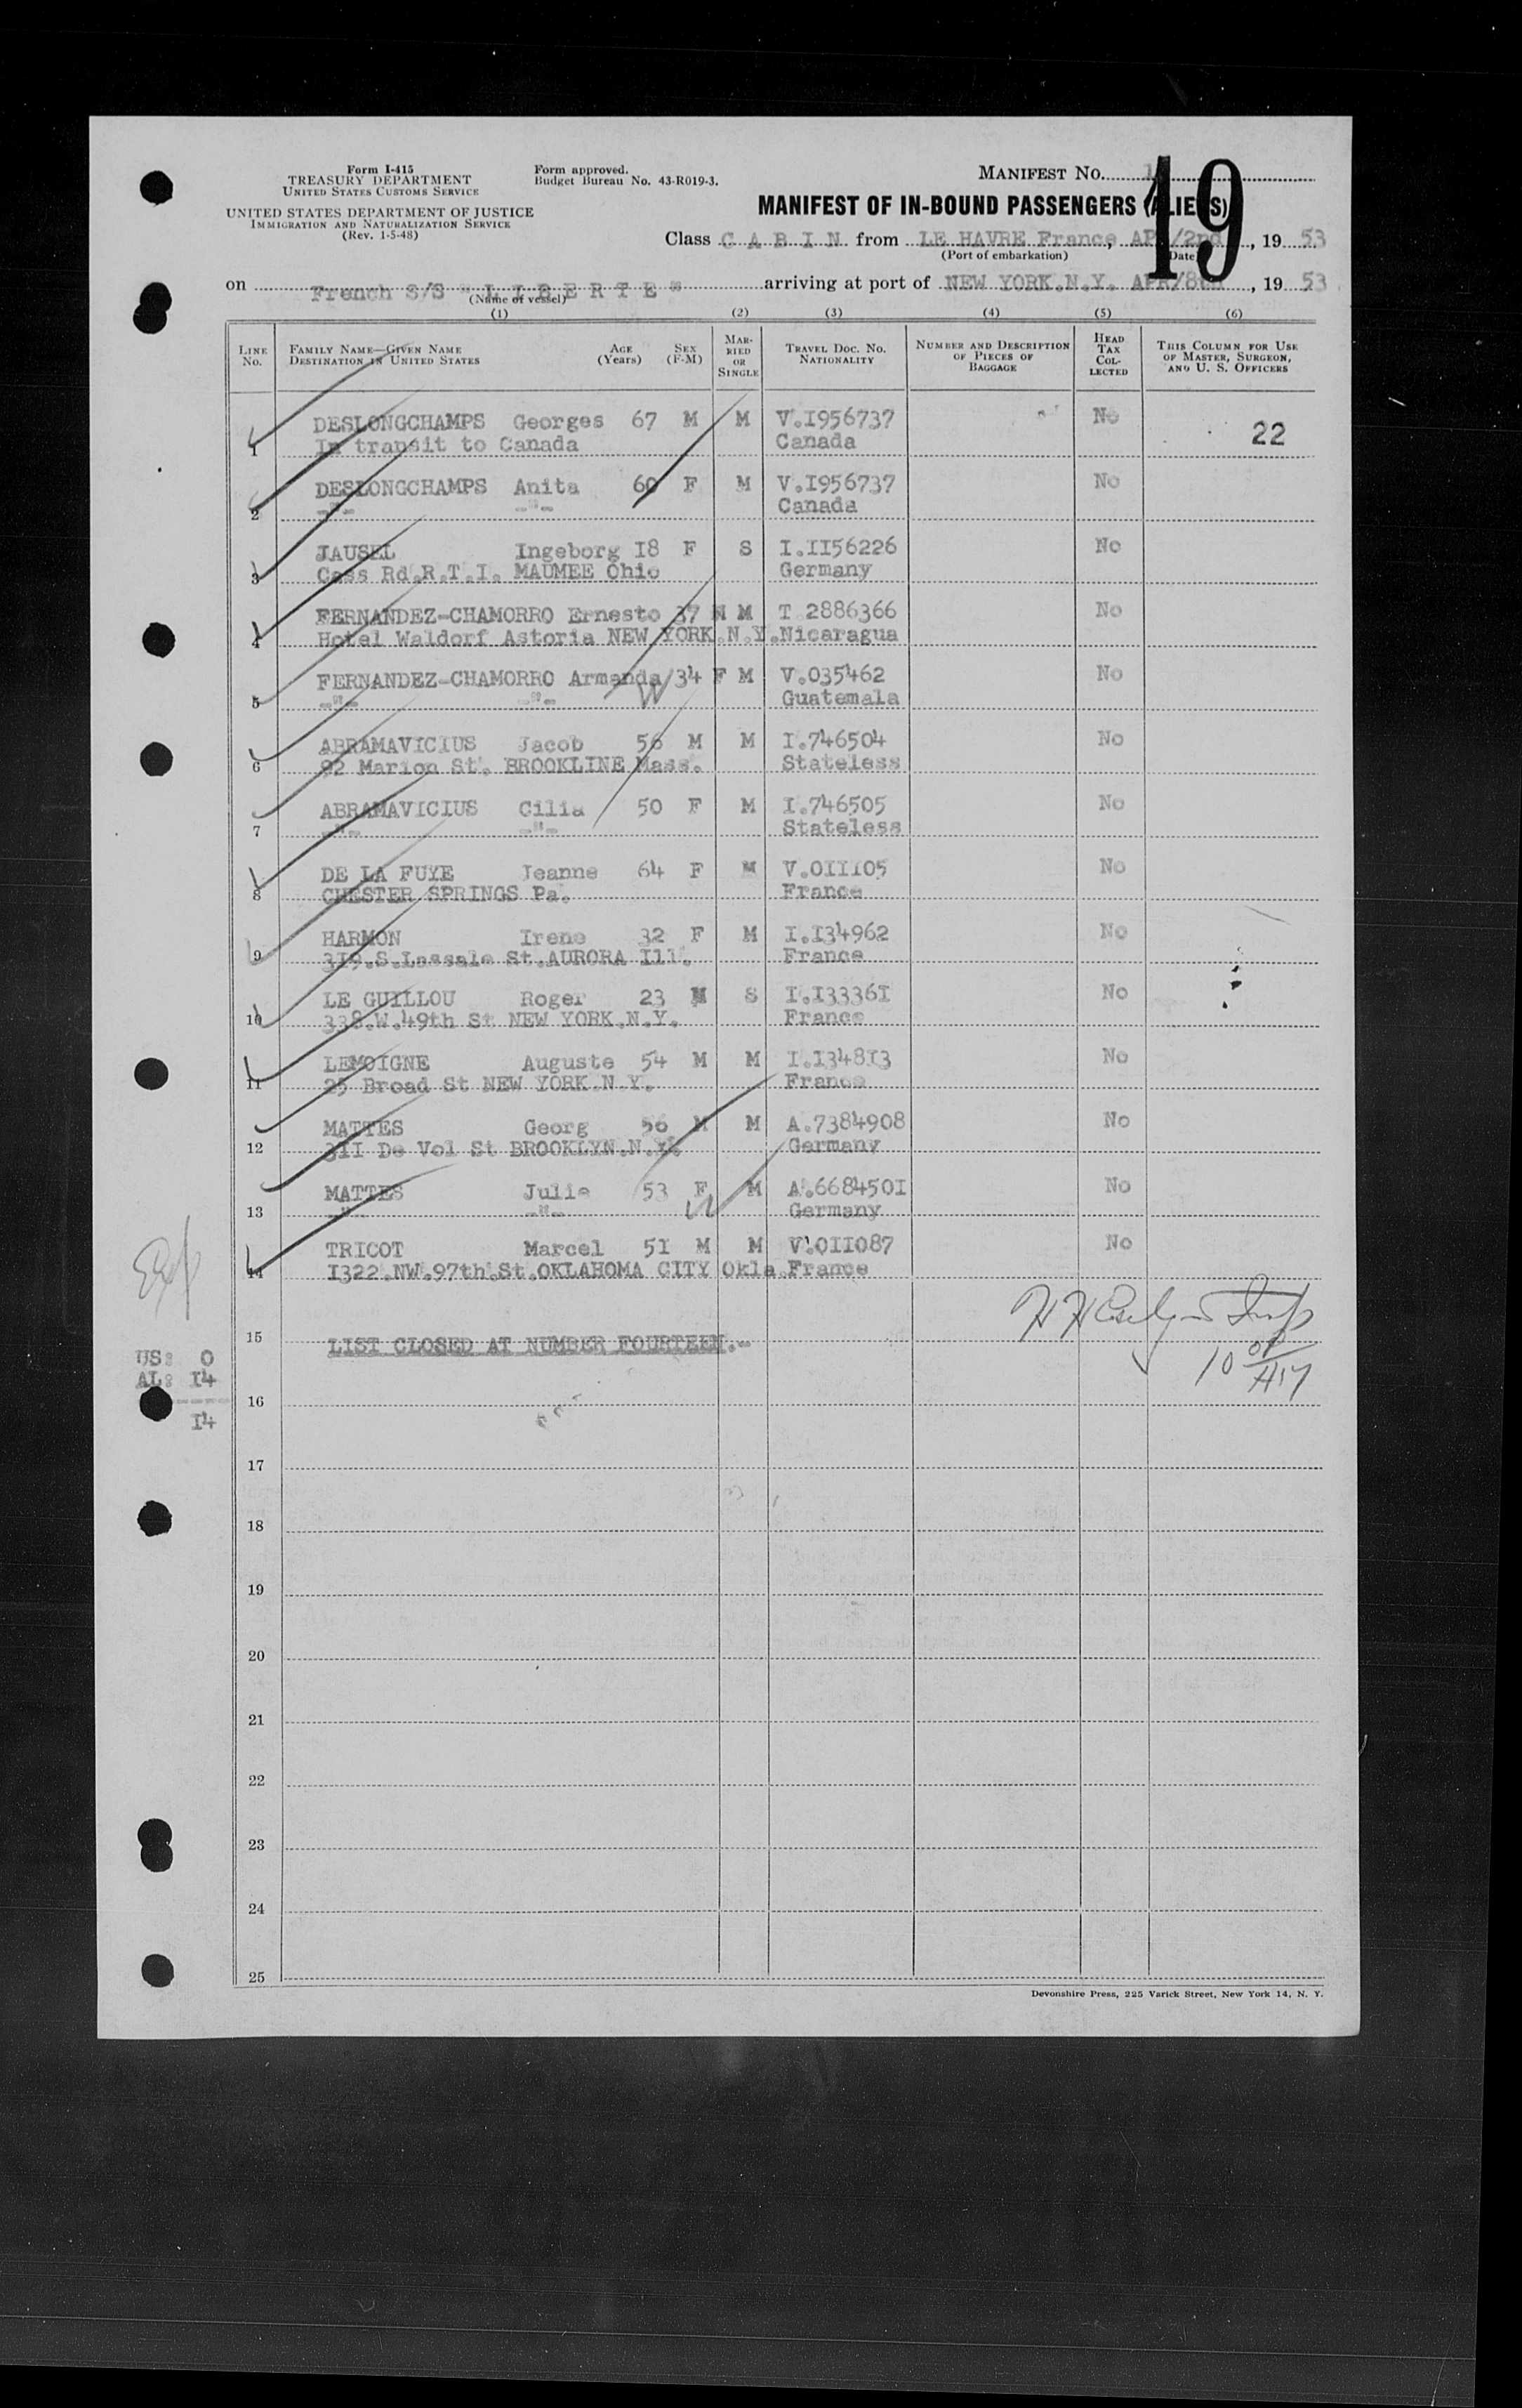 Form I-415
TREASURY DEPARTMENT
UNITED STATES CUSTOMS SERVICE
UNITED STATES DEPARTMENT OF JUSTICE
IMMIGRATION AND NATURALIZATION SERVICE
(Rev. 1-5-48)
Form approved.
Budget Bureau No. 43-R019-3.
MANIFEST No.
19
MANIFEST OF IN-BOUND PASSENGERS (ALIENS)
Class C A B I N from LE HAVRE France, APR/2nd, 19 53
(Port of embarkation) (Date)
on French S/S " L I B E R T E " arriving at port of NEW YORK.N.Y. APR/8th, 19 53
(Name of vessel)
(1) (2) (3) (4) (5) (6)
LINE No. FAMILY NAME—GIVEN NAME DESTINATION IN UNITED STATES AGE (Years) SEX (F-M) MARRIED OR SINGLE TRAVEL DOC. NO. NATIONALITY NUMBER AND DESCRIPTION OF PIECES OF BAGGAGE HEAD TAX COLLECTED THIS COLUMN FOR USE OF MASTER, SURGEON, AND U. S. OFFICERS
DESLONGCHAMPS Georges 67 M M V.I956737 No 22
1 In transit to Canada Canada
DESLONGCHAMPS Anita 60 F M V.I956737 No
2 -"- -"- Canada
JAUSEL Ingeborg I8 F S I.II56226 No
3 Cass Rd.R.T.I. MAUMEE Ohio Germany
FERNANDEZ-CHAMORRO Ernesto 37 M M T 2886366 No
4 Hotel Waldorf Astoria NEW YORK.N.Y. Nicaragua
FERNANDEZ-CHAMORRO Armanda 34 F M V.035462 No
5 -"- -"- Guatemala
ABRAMAVICIUS Jacob 56 M M I.746504 No
6 92 Marion St. BROOKLINE Mass. Stateless
ABRAMAVICIUS Cilia 50 F M I.746505 No
7 -"- -"- Stateless
DE LA FUYE Jeanne 64 F M V.0III05 No
8 CHESTER SPRINGS Pa. France
HARMON Irene 32 F M I.I34962 No
9 3I9.S.Lassale St.AURORA Ill. France
LE GUILLOU Roger 23 M S I.I3336I No
10 338.W.49th St NEW YORK.N.Y. France
LEMOIGNE Auguste 54 M M I.I348I3 No
11 25 Broad St NEW YORK.N.Y. France
MATTES Georg 56 M M A.7384908 No
12 3II De Vol St BROOKLYN.N.Y. Germany
MATTES Julie 53 F M A.668450I No
13 -"- -"- Germany
TRICOT Marcel 5I M M V.0II087 No
14 I322.NW.97th.St.OKLAHOMA CITY Okla.France
15 LIST CLOSED AT NUMBER FOURTEEN.-
US: 0
AL: I4
I4
16
17
18
19
20
21
22
23
24
25
Devonshire Press, 225 Varick Street, New York 14, N. Y.